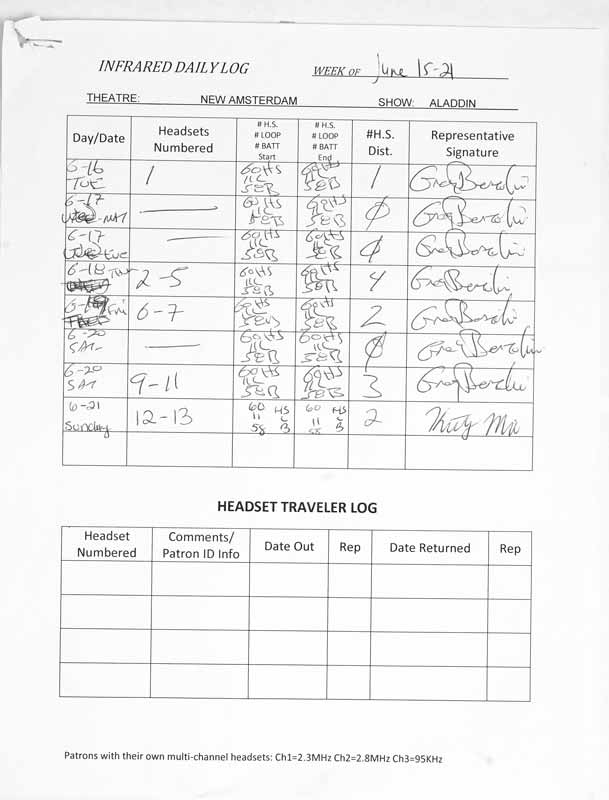 INFRARED DAILY LOG WEEK OF June 15-21
THEATRE: NEW AMSTERDAM SHOW: ALADDIN
Day/Date Headsets Numbered # H.S. # LOOP # BATT Start # H.S. # LOOP # BATT End #H.S. Dist. Representative Signature
6-16 TUE 1 60HS 11L 58B 60HS 11L 58B 1
6-17 WED-MAT — 60HS 11L 58B 60HS 11L 58B 0
6-17 WED EVE — 60HS 11L 58B 60HS 11L 58B 0
6-18 Thu 2-5 60HS 11L 58B 60HS 11L 58B 4
6-19 Fri 6-7 60HS 11L 58B 60HS 11L 58B 2
6-20 SAT — 60HS 11L 58B 60HS 11L 58B 0
6-20 SAT 9-11 60HS 11L 58B 60HS 11L 58B 3
6-21 Sunday 12-13 60 HS 11 L 58 B 60 HS 11 L 58 B 2
HEADSET TRAVELER LOG
Headset Numbered Comments/ Patron ID Info Date Out Rep Date Returned Rep
Patrons with their own multi-channel headsets: Ch1=2.3MHz Ch2=2.8MHz Ch3=95KHz